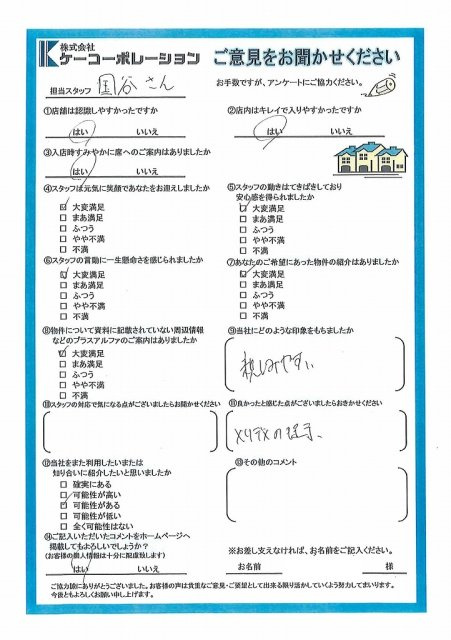 株式会社
ケーコーポレーション
ご意見をお聞かせください
担当スタッフ 国谷さん
お手数ですが、アンケートにご協力ください。
①店舗は認識しやすかったですか
はい いいえ
②店内はキレイで入りやすかったですか
はい いいえ
③入店時すみやかに席へのご案内はありましたか
はい いいえ
④スタッフは元気に笑顔であなたをお迎えしましたか
大変満足
まあ満足
ふつう
やや不満
不満
⑤スタッフの動きはてきぱきしており
安心感を得られましたか
大変満足
まあ満足
ふつう
やや不満
不満
⑥スタッフの言動に一生懸命さを感じられましたか
大変満足
まあ満足
ふつう
やや不満
不満
⑦あなたのご希望にあった物件の紹介はありましたか
大変満足
まあ満足
ふつう
やや不満
不満
⑧物件について資料に記載されていない周辺情報
などのプラスアルファのご案内はありましたか
大変満足
まあ満足
ふつう
やや不満
不満
⑨当社にどのような印象をもちましたか
親しみやすい
⑩スタッフの対応で気になる点がございましたらお聞かせください
⑪良かったと感じた点がございましたらおきかせください
メリデメの提示、
⑫当社をまた利用したいまたは
知り合いに紹介したいと思いましたか
確実にある
可能性が高い
可能性がある
可能性が低い
全く可能性はない
⑬その他のコメント
⑭ご記入いただいたコメントをホームページへ
掲載してもよろしいでしょうか?
(お客様の個人情報は十分に配慮致します)
はい いいえ
※お差し支えなければ、お名前をご記入ください。
お名前 様
ご協力誠にありがとうございました。お客様の声は貴重なご意見・ご要望として出来る限り活かしていくよう努力してまいります。
今後ともよろしくお願い申し上げます。